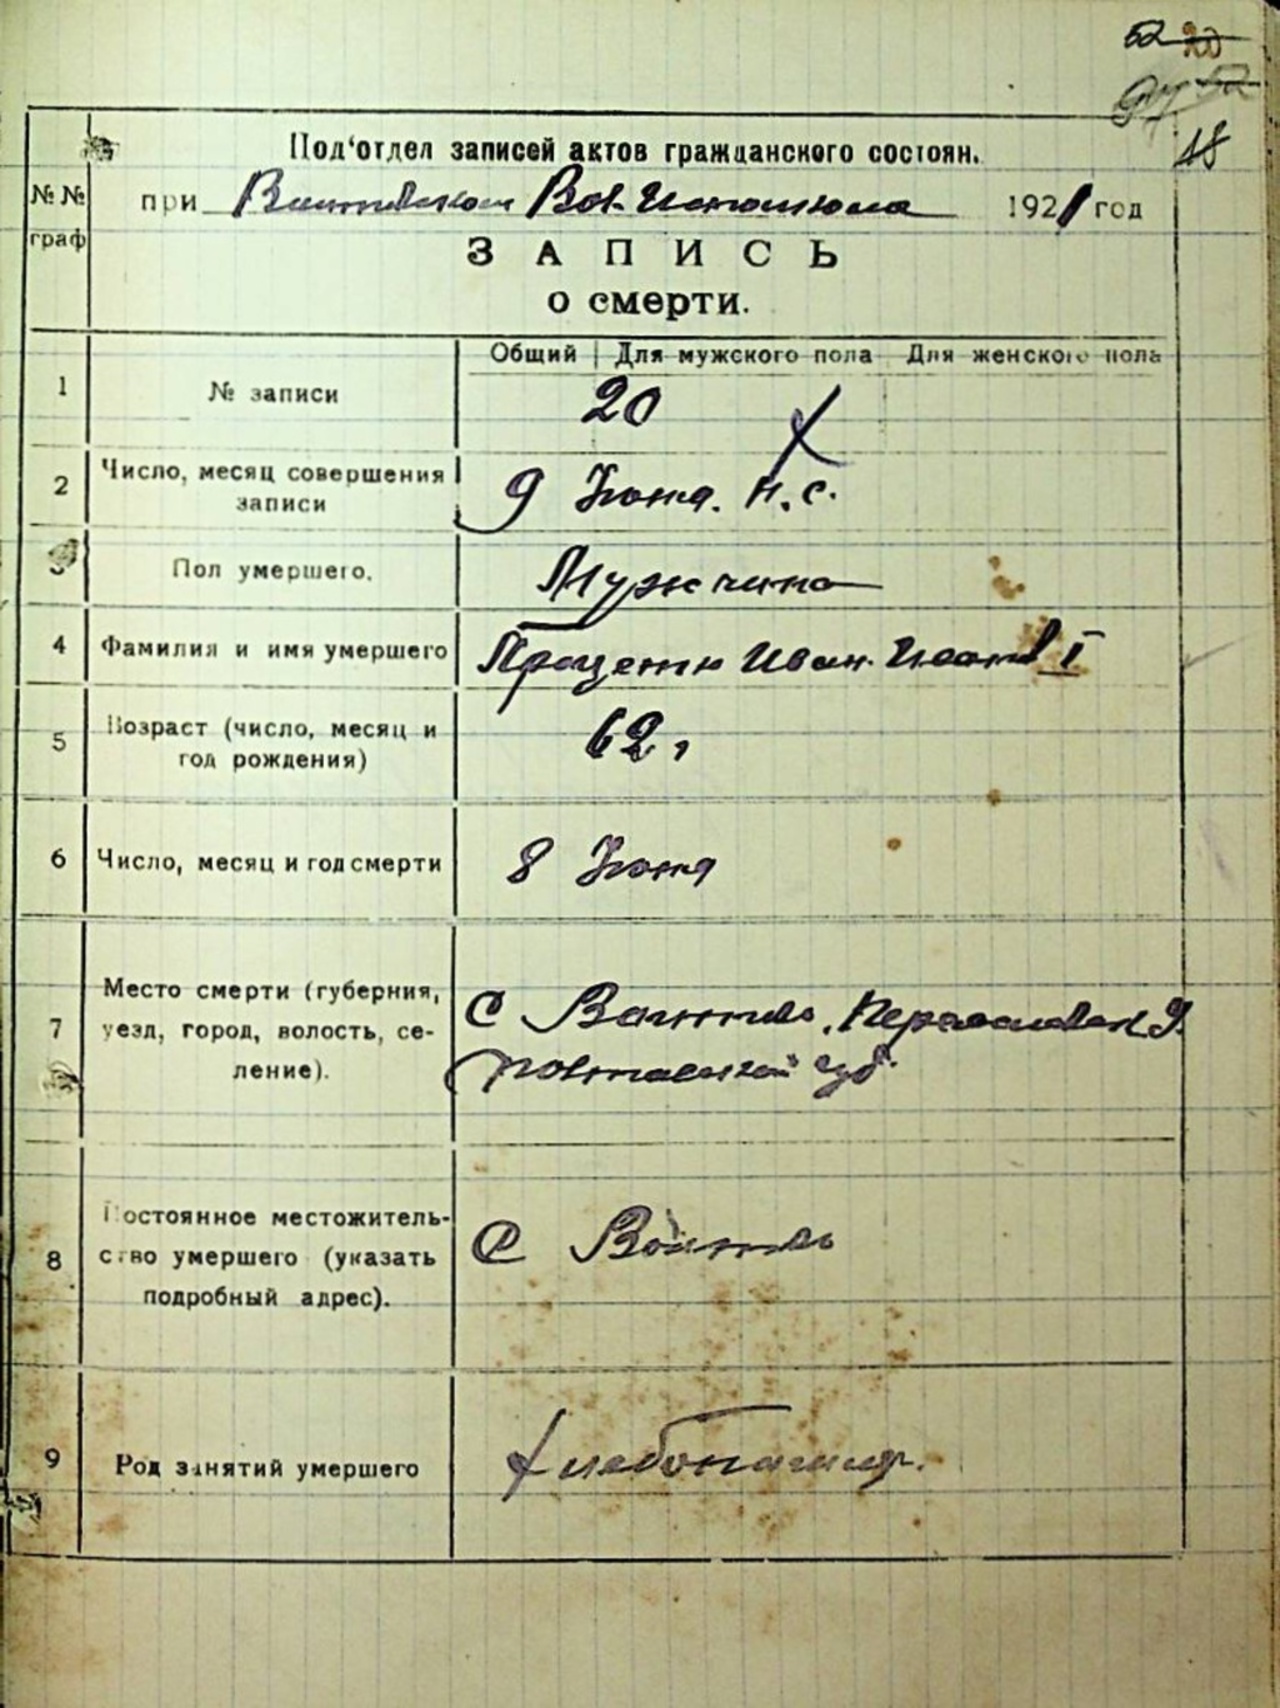 52 200
18
Под'отдел записей актов гражданского состоян.
№ №
граф
при Вол. Исполкома 1921 год
ЗАПИСЬ
о смерти.
Общий Для мужского пола Для женского пола
1 № записи 20
2 Число, месяц совершения
записи
9 Июня. Н.С.
3 Пол умершего. Мужчина
4 Фамилия и имя умершего Проценко Иван I
5 Возраст (число, месяц и
год рождения)
62 г
6 Число, месяц и год смерти 8 Июня
7 Место смерти (губерния,
уезд, город, волость, се-
ление).
С Войтово, Переяславск у.
Полтавской губ.
8 Постоянное местожитель-
ство умершего (указать
подробный адрес).
С Войтово
9 Род занятий умершего Хлебопашец.